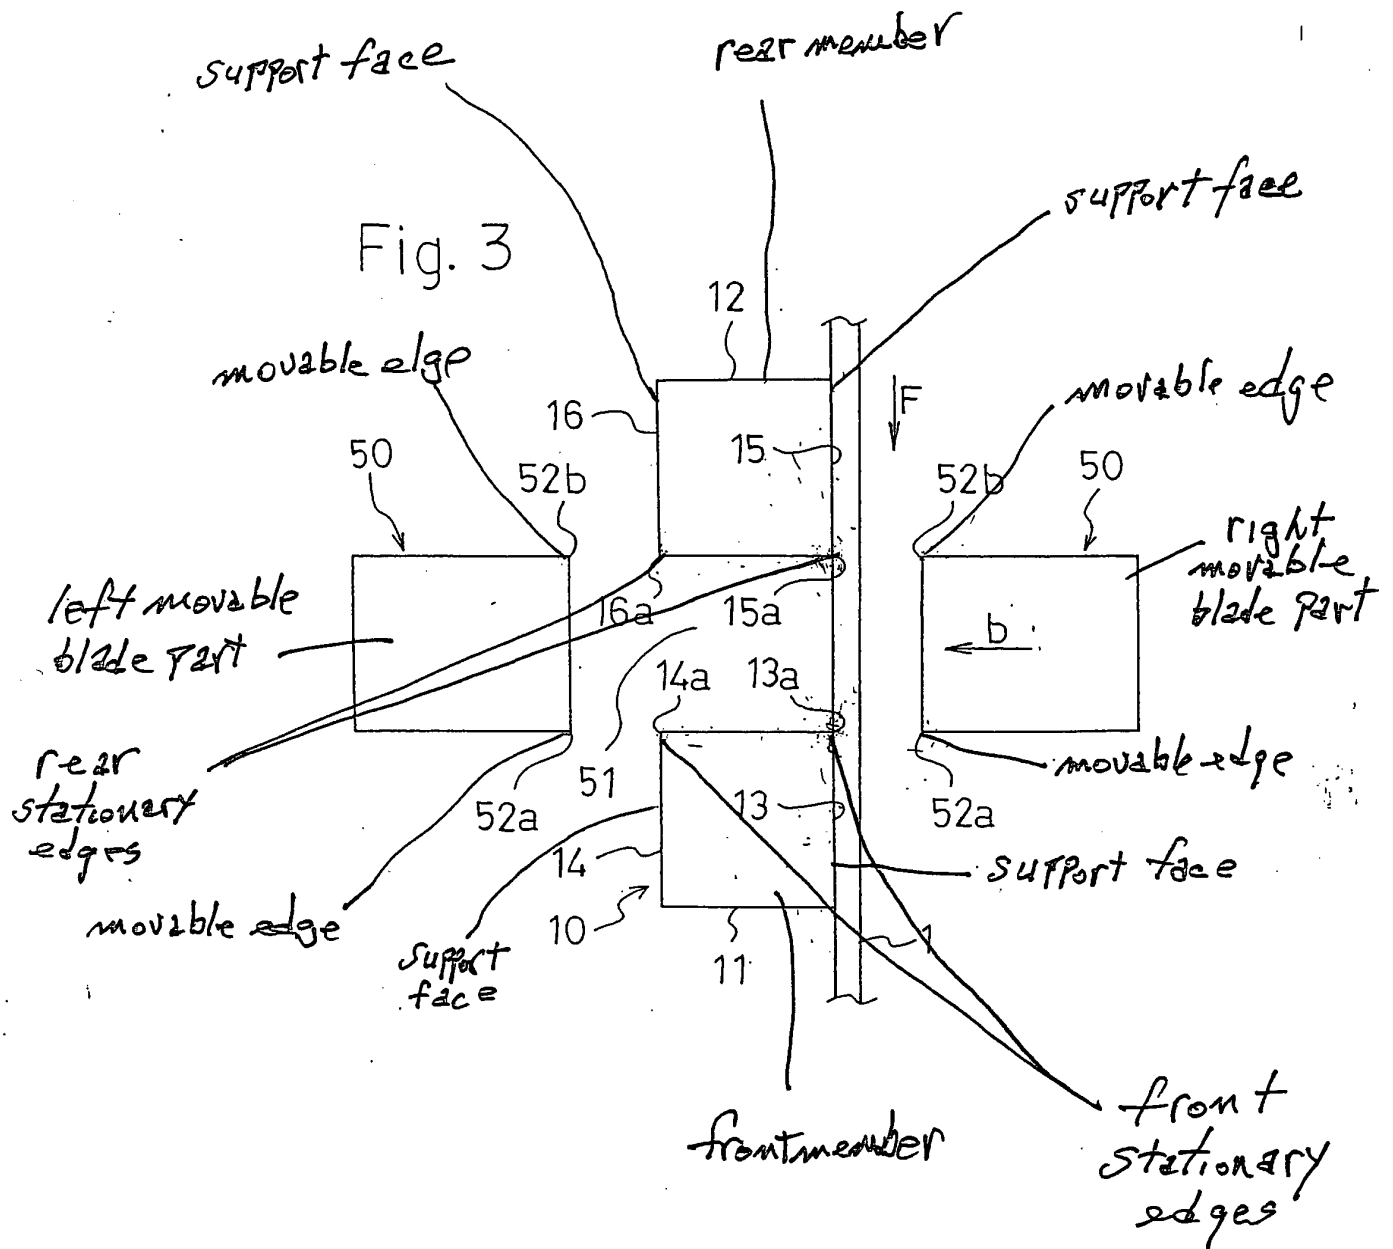 support face
rear member
support face
Fig. 3
12
movable elge
movable edge
F
16
15
50
52b
52b
50
right
movable
blade part
left movable
blade part
16a
15a
b
14a
13a
rear
stationary
edges
51
movable edge
52a
13
52a
14
support face
movable edge
10
11
1
support
face
front member
front
stationary
edges